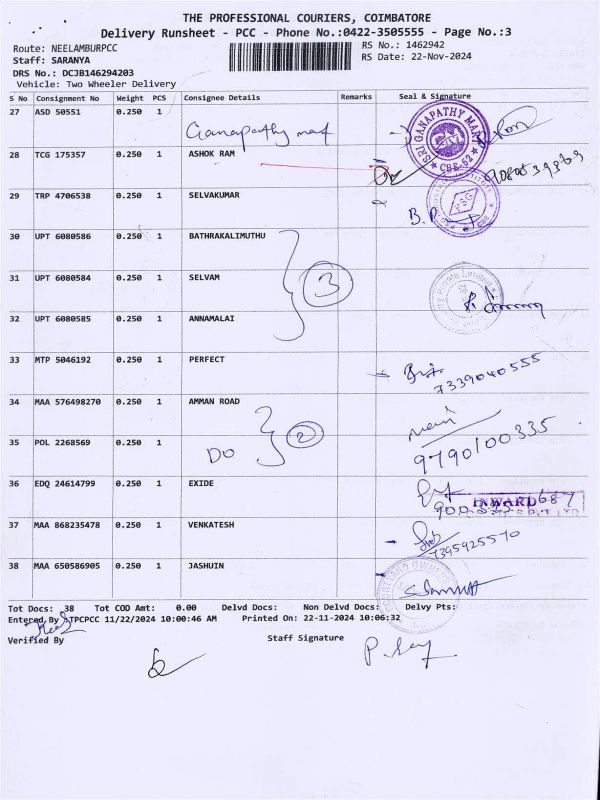 THE PROFESSIONAL COURIERS, COIMBATORE
Delivery Runsheet - PCC - Phone No.:0422-3505555 - Page No.:3
Route: NEELAMBURPCC
RS No.: 1462942
Staff: SARANYA
RS Date: 22-Nov-2024
DRS No.: DCJB146294203
Vehicle: Two Wheeler Delivery
S No Consignment No Weight PCS Consignee Details Remarks Seal & Signature
27 ASD 50551 0.250 1 Ganapathy mart
SRI GANAPATHY MART CBE-62
28 TCG 175357 0.250 1 ASHOK RAM
29 TRP 4706538 0.250 1 SELVAKUMAR
PSG
CBE
30 UPT 6080586 0.250 1 BATHRAKALIMUTHU
31 UPT 6080584 0.250 1 SELVAM 3
Private Limited
32 UPT 6080585 0.250 1 ANNAMALAI
33 MTP 5046192 0.250 1 PERFECT
7339040555
34 MAA 576498270 0.250 1 AMMAN ROAD
35 POL 2268569 0.250 1 DO 2 9790100335
36 EDQ 24614799 0.250 1 EXIDE
INWARD
37 MAA 868235478 0.250 1 VENKATESH
7395925570
38 MAA 650586905 0.250 1 JASHUIN
Tot Docs: 38 Tot COD Amt: 0.00 Delvd Docs: Non Delvd Docs: Delvy Pts:
Entered By :TPCPCC 11/22/2024 10:00:46 AM Printed On: 22-11-2024 10:06:32
Verified By
Staff Signature